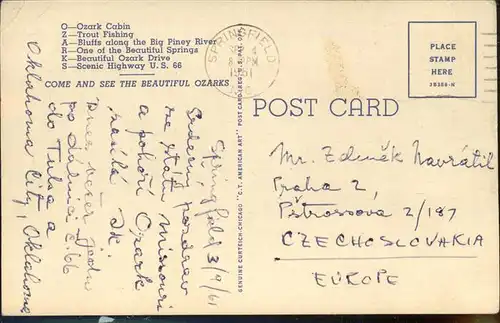 O—Ozark Cabin
Z—Trout Fishing
A—Bluffs along the Big Piney River
R—One of the Beautiful Springs
K—Beautiful Ozark Drive
S—Scenic Highway U.S. 66
COME AND SEE THE BEAUTIFUL OZARKS
SPRINGFIELD
4
PM
1961
PLACE
STAMP
HERE
POST CARD
GENUINE CURTEICH-CHICAGO "C.T. AMERICAN ART" POST CARD
Springfield 3/9/61
Srdečný pozdrav
ze státu Missouri
a pohoří Ozark
zasílá JK.
Dnes večer jedu
po dálnici č. 66
do Tulsa a
Oklahoma City, Oklahoma
Mr. Zdeněk Navrátil
Praha 2,
Pštrossova 2/187
CZECHOSLOVAKIA
EUROPE